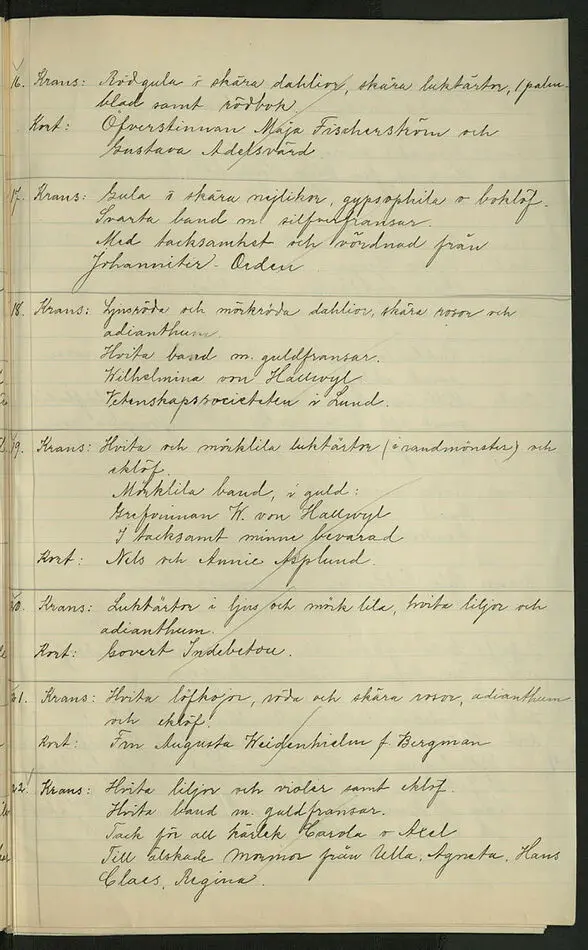 16. Krans: Rödgula o skära dahlior, skära luktärtor, (palm-
blad samt rödbok
Kort: Öfverstinnan Maja Fischerström och
Gustava Adelsvärd
17. Krans: Gula o skära nejlikor, gypsophila o boklöf.
Svarta band m. silfverfransar.
Med tacksamhet och vördnad från
Johanniter-Orden
18. Krans: Ljusröda och mörkröda dahlior, skära rosor och
adianthum.
Hvita band m. guldfransar.
Wilhelmina von Hallwyl
Vetenskapssocieteten i Lund.
19. Krans: Hvita och mörklila luktärtor (i randmönster) och
eklöf.
Mörklila band, i guld:
Grefvinnan W. von Hallwyl
I tacksamt minne bevarad
Kort: Nils och Annie Asplund.
20. Krans: Luktärtor i ljus och mörk lila, hvita liljor och
adianthum.
Kort: Govert Indebetou.
21. Krans: Hvita löfkojor, röda och skära rosor, adianthum
och eklöf.
Kort: Fru Augusta Weidenhielm f. Bergman
22. Krans: Hvita liljor och violer samt eklöf.
Hvita band m. guldfransar.
Tack för all kärlek Carola o Axel
Till älskade Mormor från Ulla, Agneta, Hans
Claes, Regina.